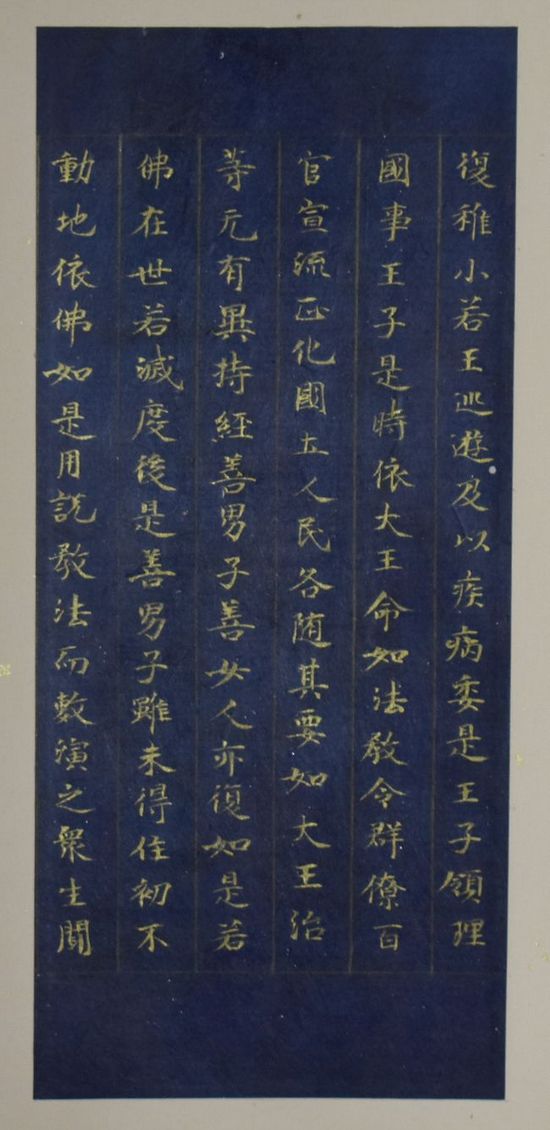 復稚小若王巡遊及以疾病委是王子領理
國事王子是時依大王命如法教令群僚百
官宣流正化國土人民各随其要如大王治
等无有異持經善男子善女人亦復如是若
佛在世若滅度後是善男子雖未得住初不
動地依佛如是用說教法而敷演之衆生聞